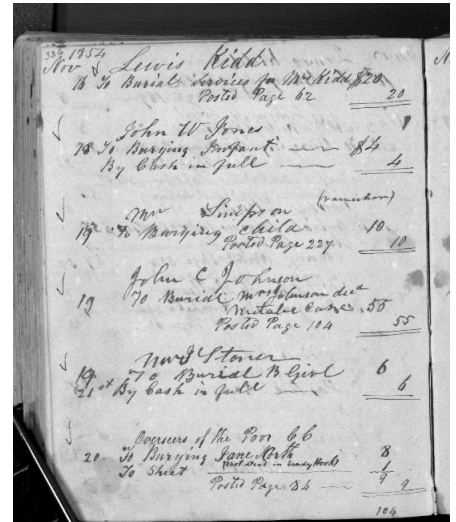 334 1854
Nov Lewis Kidd
18 To Burial Services for Mr Kidd $20
Posted Page 62 20
John W Jones
18 To Burying Infant $4
By Cash in full 4
Mr Simpson
19 To Burying Child 10
Posted Page 227 10
John C Johnson
19 To Burial Mrs Johnson decd
Metalic Case 55
Posted Page 104 55
Mr J Stoner
19 To Burial B Girl 6
21st By Cash in full 6
Overseers of the Poor CC
20 To Burying Jane North 8
To Sheat 1
9
Posted Page 34 9
104